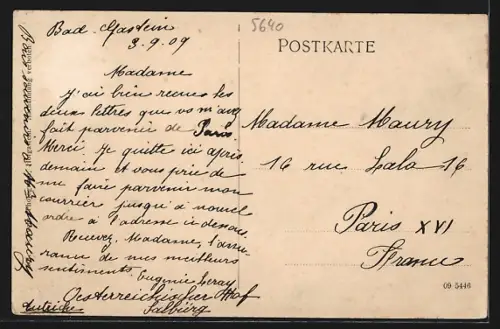 Bad-Gastein
3.9.09
5640
POSTKARTE
Madame
J'ai bien reçues les
deux lettres que vous m'avez
fait parvenir de Paris
Merci je quitte ici après
demain et vous prie de
me faire parvenir mon
courrier jusqu'à nouvel
ordre à l'adresse ci dessous.
Recevez, Madame, l'assu-
rance de mes meilleurs
sentiments. Eugenie Leray
Oesterreichischer Hof
Autriche Salburg
Madame Maury
16 rue Lalo 16
Paris XVI
France
09 5446